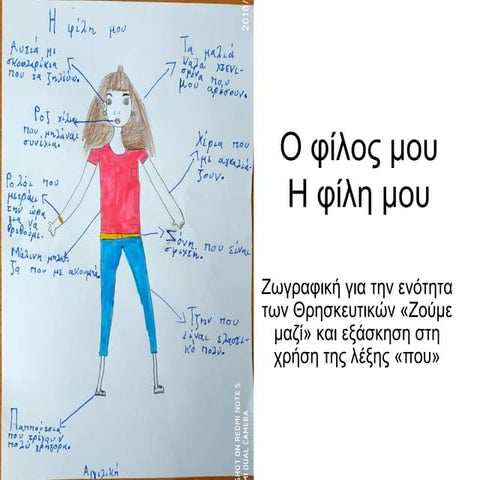 Η φίλη μου
Αυτιά με
σκουλαρίκια
που τα ζηλεύω.
Τα μαλλιά
καλά χτενι-
σμένα που
μου αρέσουν.
Ροζ χείλια
που μιλάνε
συνέχεια.
Χέρια που
με αγκαλιά-
ζουν.
Ρολόι που
μετράει
την ώρα
για να
βρεθούμε.
Ζώνη που είναι
σφιχτή.
που με ακουμπά.
Τζην που
είναι ελαστι-
κό πολύ.
Παπούτσια
που τρέχουν
πολύ γρήγορα.
Αγγελική
SHOT ON REDMI NOTE 5
MI DUAL CAMERA
2018/
Ο φίλος μου
Η φίλη μου
Ζωγραφική για την ενότητα
των Θρησκευτικών «Ζούμε
μαζί» και εξάσκηση στη
χρήση της λέξης «που»